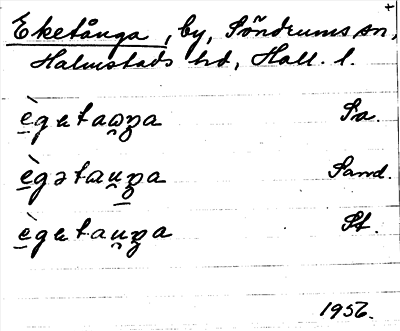 Eketånga, by, Söndrums sn,
Halmstads hd, Hall. l.
ègetaŋa Sa.
ègəta Sand.
ègeta St.
1956.